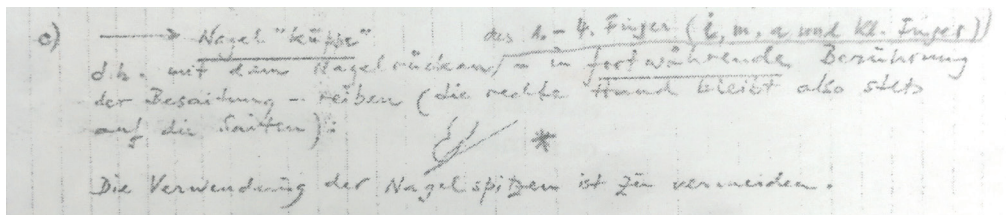 c) → Nagel "kuppe" des 1. - 4. Finger (i, m, a und kl. Finger))
d.h. mit dem Nagelrücken, - in fortwährender Berührung
der Besaitung - reiben (die rechte Hand bleibt also stets
auf die Saiten):
*
Die Verwendung der Nagelspitzen ist zu vermeiden.